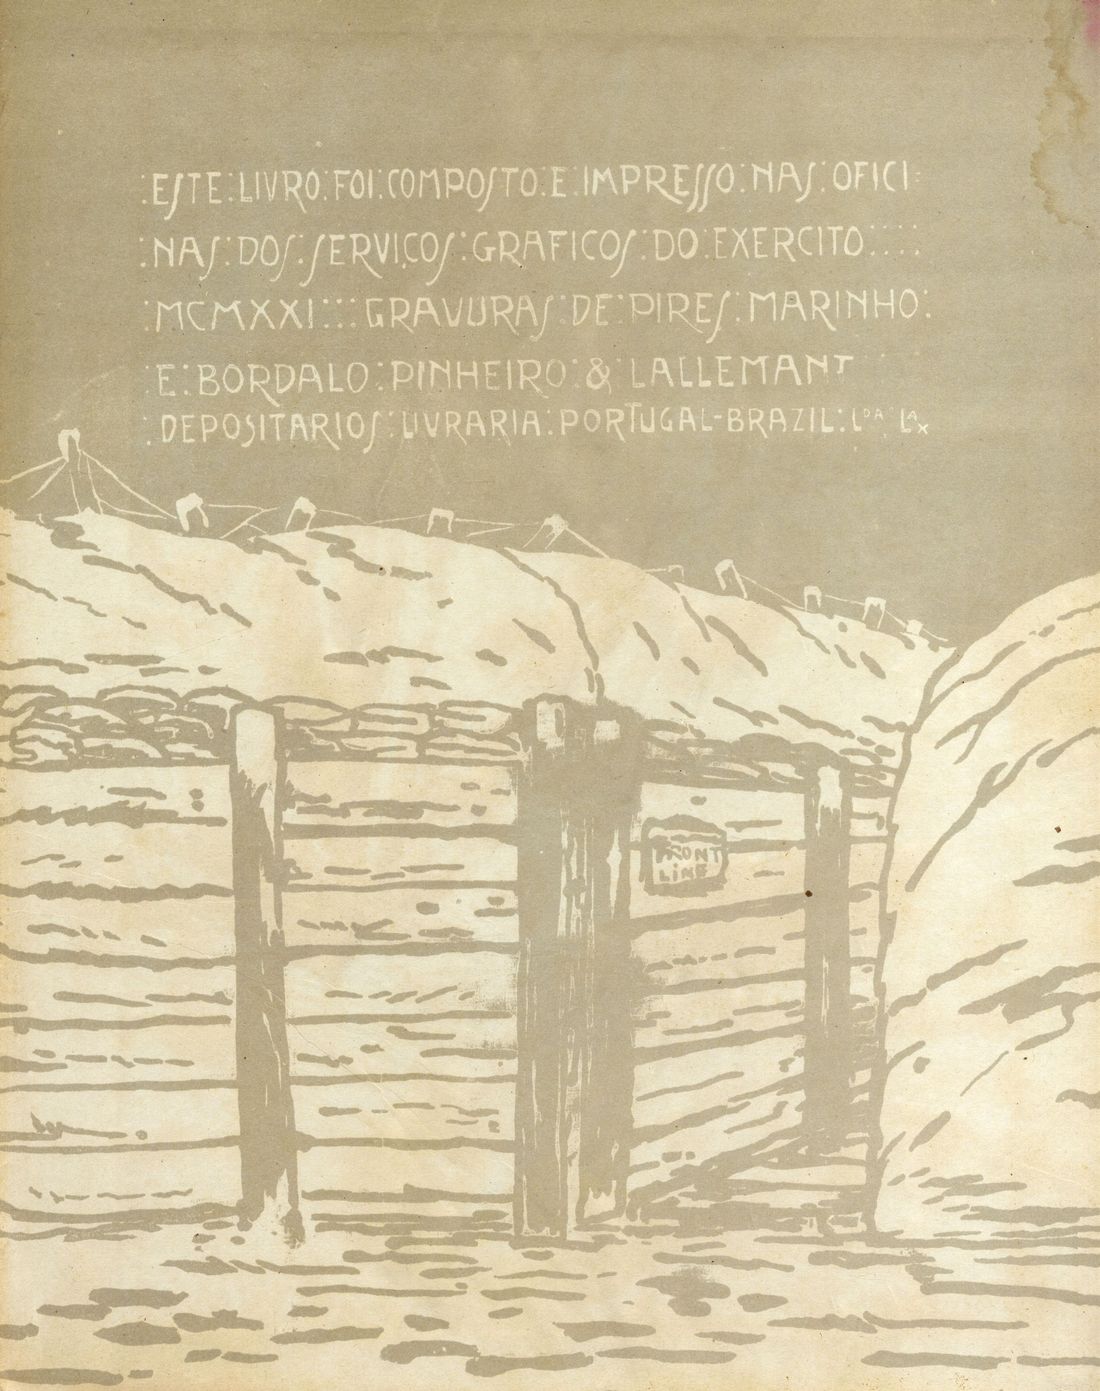 :ESTE:LIVRO:FOI:COMPOSTO:E:IMPRESSO:NAS:OFICI:
:NAS:DOS:SERVIÇOS:GRAFICOS:DO:EXERCITO::::
:MCMXXI:::GRAVURAS:DE:PIRES:MARINHO:
:E:BORDALO:PINHEIRO:&:LALLEMANT
:DEPOSITARIOS:LIVRARIA:PORTUGAL-BRAZIL:LDA:LX
FRONT
LINE